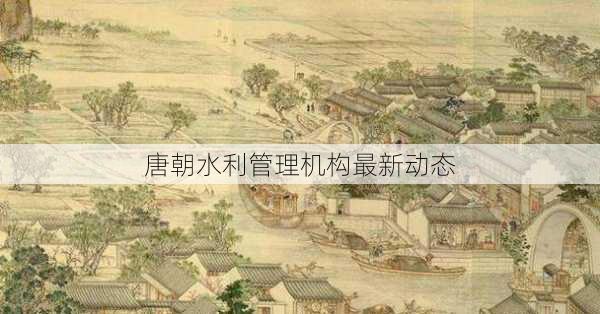 唐朝水利管理机构最新动态